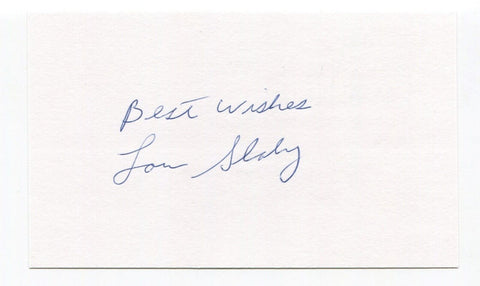 Best Wishes
Lou Slaby